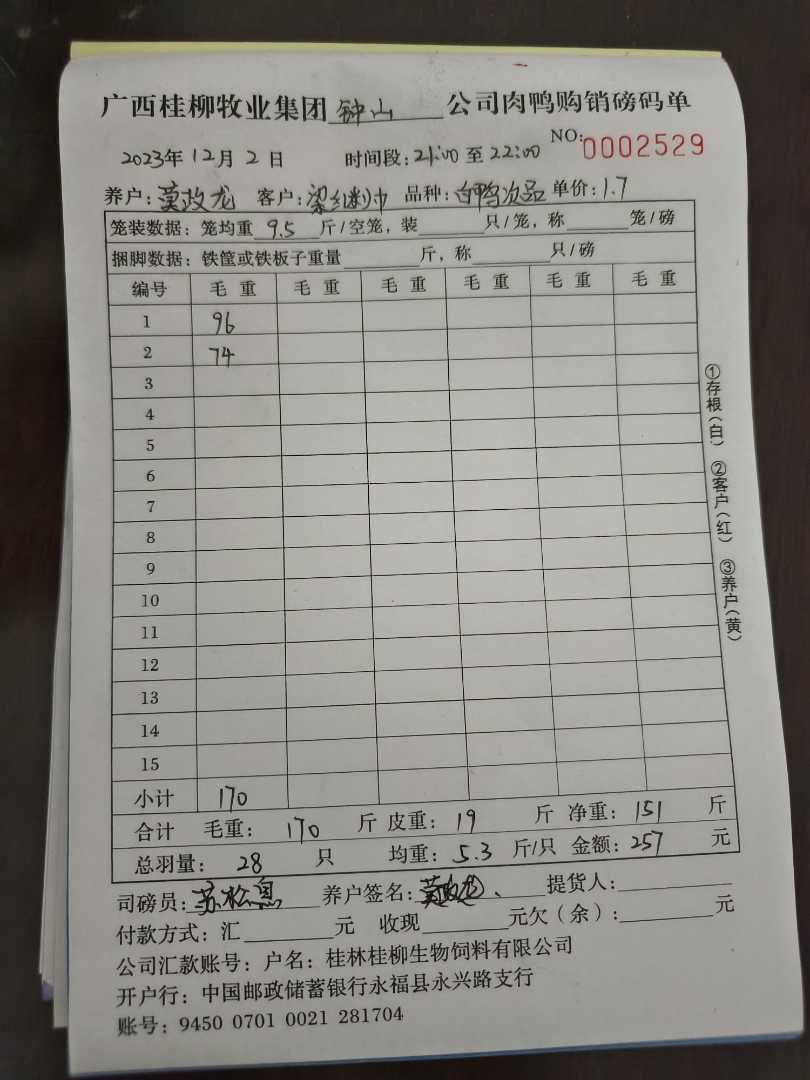 广西桂柳牧业集团 钟山 公司肉鸭购销磅码单
NO:0002529
2023年12月2日 时间段:21:00至22:00
养户:莫政龙 客户: 品种:白鸭次品 单价:1.7
笼装数据:笼均重 9.5 斤/空笼,装 只/笼,称 笼/磅
捆脚数据:铁筐或铁板子重量 斤,称 只/磅
编号 毛重 毛重 毛重 毛重 毛重 毛重
1 96
2 74
3
4
5
6
7
8
9
10
11
12
13
14
15
小计 170
合计 毛重: 170 斤 皮重: 19 斤 净重: 151 斤
总羽量: 28 只 均重: 5.3 斤/只 金额: 257 元
司磅员: 养户签名: 莫政龙、 提货人:
付款方式:汇 元 收现 元欠(余): 元
公司汇款账号:户名:桂林桂柳生物饲料有限公司
开户行:中国邮政储蓄银行永福县永兴路支行
账号:9450 0701 0021 281704
①存根(白) ②客户(红) ③养户(黄)